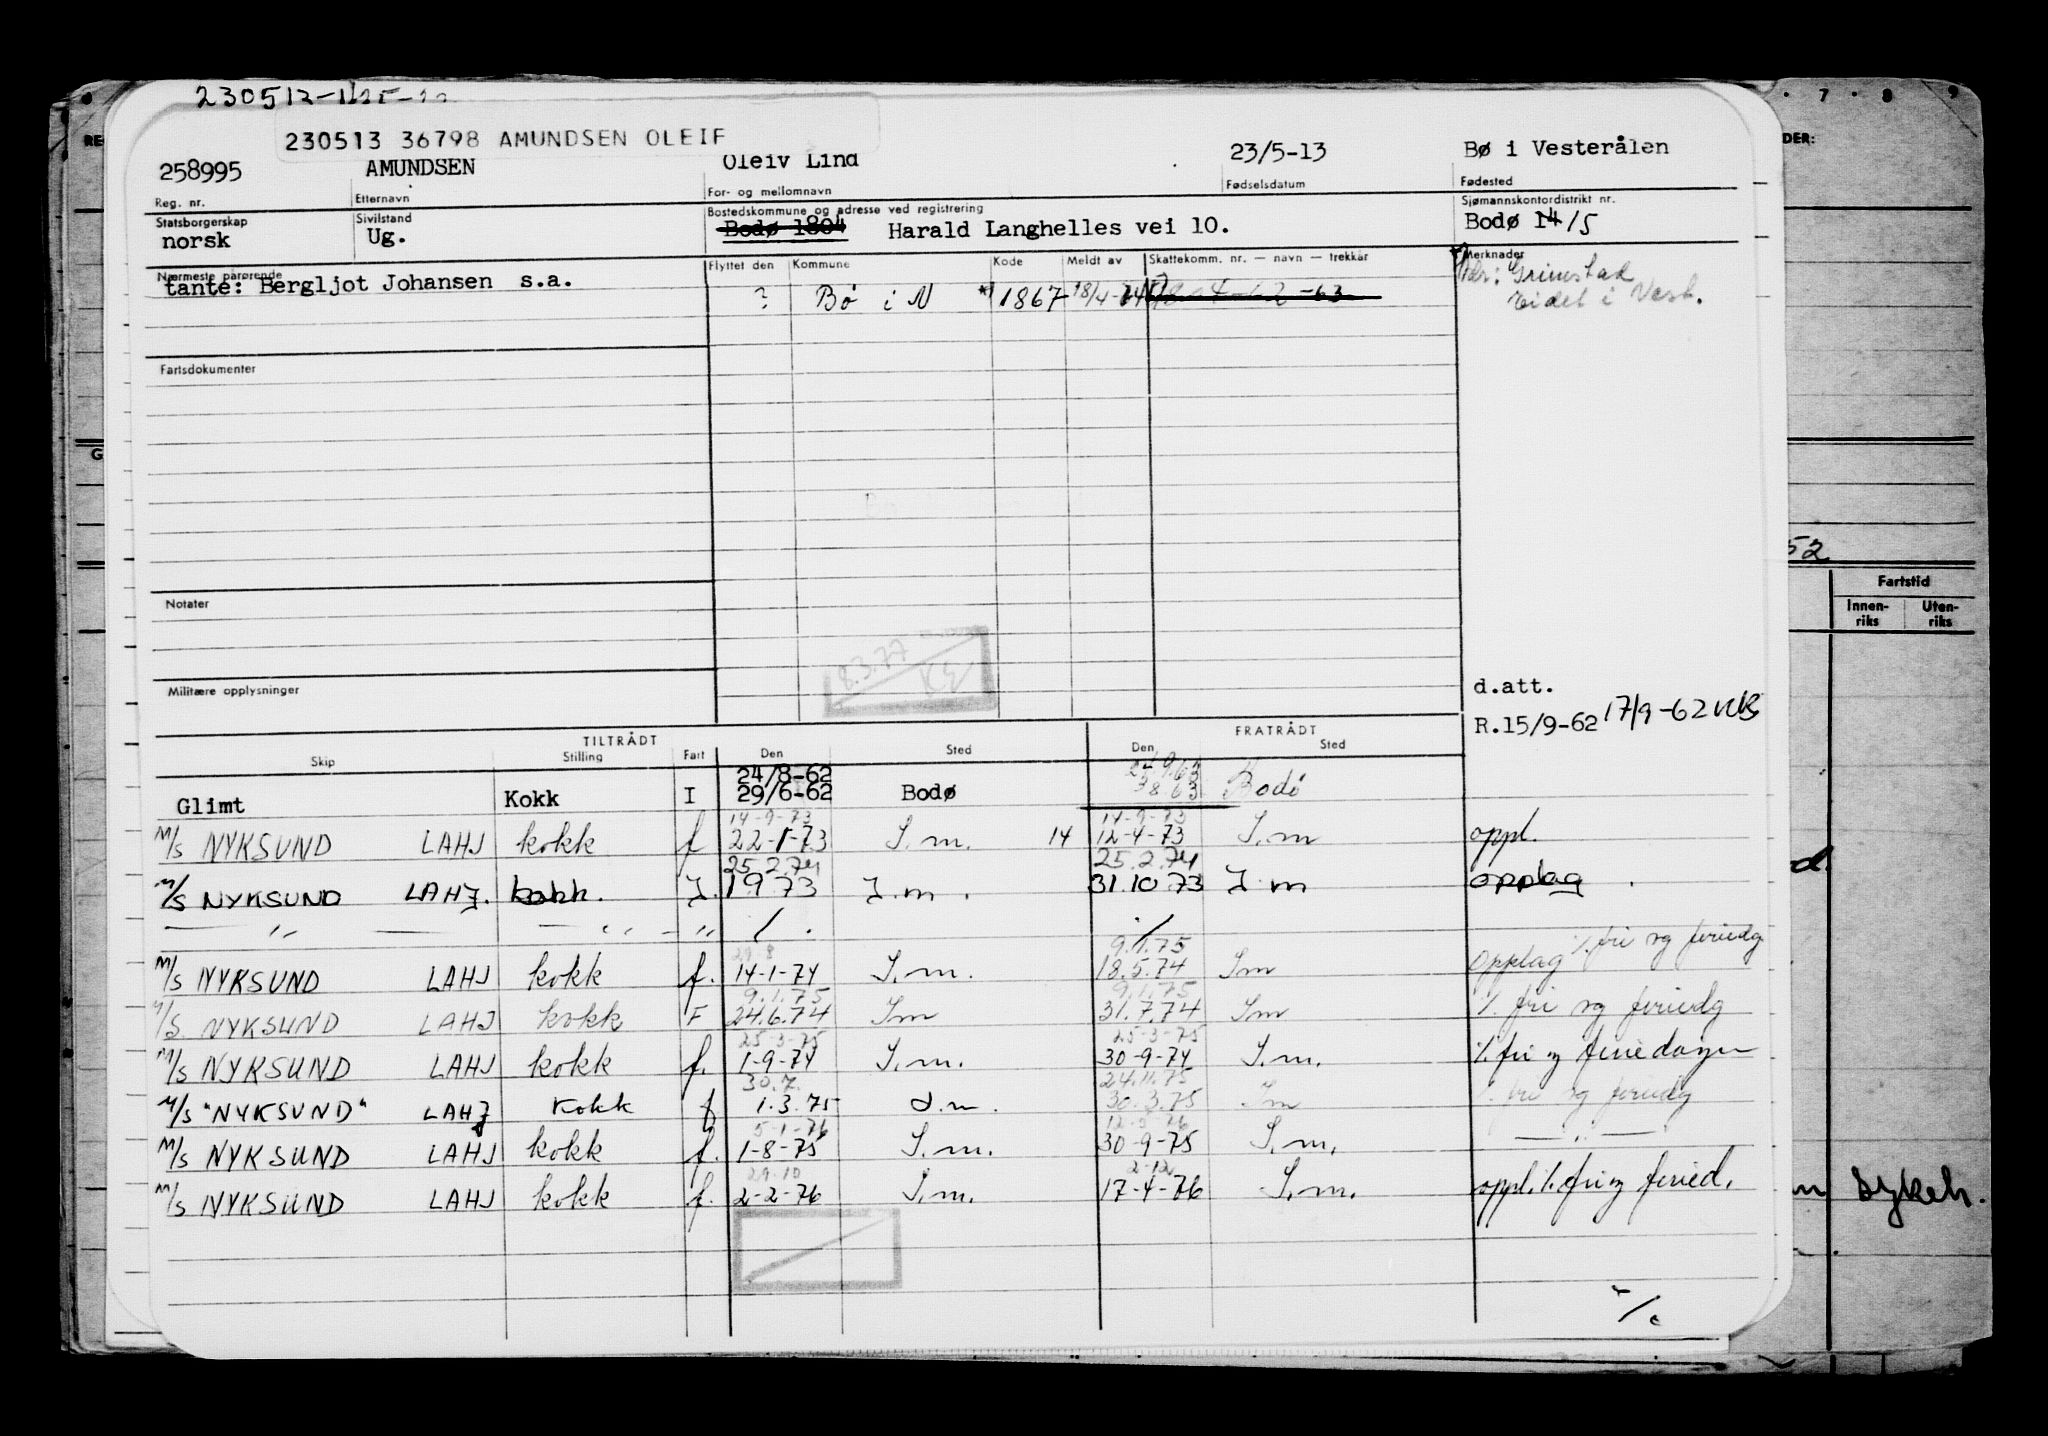 230513 36798 AMUNDSEN OLEIF
258995 AMUNDSEN Oleiv Lind 23/5-13 Bø i Vesterålen
Reg. nr. Etternavn For- og mellomnavn Fødselsdatum Fødested
Statsborgerskap Sivilstand Bostedskommune og adresse ved registrering Sjømannskontordistrikt nr.
norsk Ug. Bodø 1804 Harald Langhelles vei 10. Bodø 14/5
Nærmeste pårørende Flyttet den Kommune Kode Meldt av Skattekomm. nr. — navn — trekkår Merknader
tante: Bergljot Johansen s.a. ? Bø i N *) 1867 18/4-74 -63
Adr: Grimstad
eidet i Vest.
Fartsdokumenter
Notater
8.3.77
Militære opplysninger
d.att.
R.15/9-62 17/9-62
TILTRÅDT FRATRÅDT
Skip Stilling Fart Den Sted Den Sted
24/8-62
Glimt Kokk I 29/6-62 Bodø Bodø
14-9-73 14-9-73
M/S NYKSUND LAHJ kokk f 22-1-73 I.m. 14 12-4-73 I.m oppl.
25.2.74 25.2.74
M/S NYKSUND LAHJ. kokk. I. 1973 I.m. 31.10 73 I m opplag
— " — — " — " / . ./.
29.8 9.1.75
M/S NYKSUND LAHJ kokk f. 14-1-74 I.m. 18.5.74 Im Opplag ./. fri og feriedg
9.1.75 9.1.75
M/S NYKSUND LAHJ kokk F 24.6.74 Im 31.7.74 Im ./. fri og feriedg
25-3-75 25-3-75
M/S NYKSUND LAHJ kokk f. 1-9-74 I.m. 30-9-74 I.m. ./. fri og feriedager
30.7. 24.11.75
M/S "NYKSUND" LAHJ Kokk f 1.3.75 I.m. 30.3.75 Im ./. fri og feriedg
5-1-76
M/S NYKSUND LAHJ kokk f. 1-8-75 I.m. 30-9-75 I.m. — " —
29-10 2-12
M/S NYKSUND LAHJ kokk f. 2-2-76 I.m. 17-4-76 I.m. oppl. ./. fri og feried.
7 8 9
DER:
G
52
Fartstid
Innen-
riks
Uten-
riks
d.
sykeh.